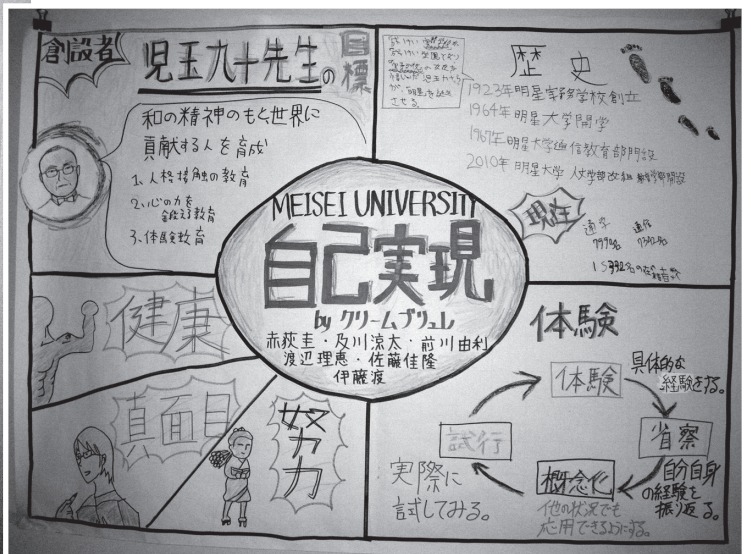 創設者
児玉九十先生の目標
和の精神のもと世界に
貢献する人を育成
1、人格接触の教育
2、心の力を
鍛える教育
3、体験教育
歴史
1923年明星実務学校創立
1964年明星大学開学
1967年明星大学通信教育部開設
2010年明星大学 人文学部改組 教育学部開設
現在
通学
通信
MEISEI UNIVERSITY
自己実現
by クリームブリュレ
赤荻圭・及川涼太・前川由利
渡辺理恵・佐藤佳隆
伊藤渡
健康
真面目
努力
体験
体験
具体的な
経験をする。
省察
自分自身
の経験を
振り返る。
概念化
他の状況でも
応用できるようにする。
試行
実際に
試してみる。